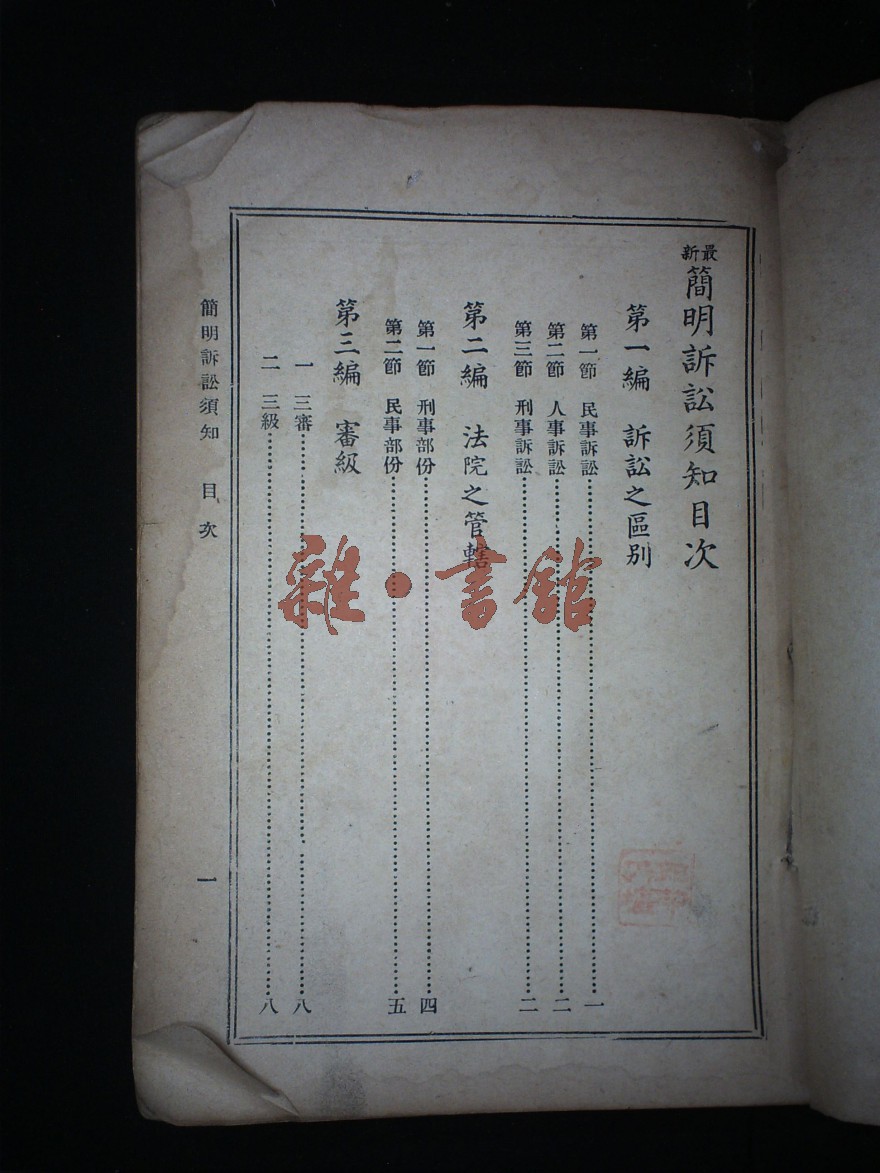 最新簡明訴訟須知目次
第一編 訴訟之區別
第一節 民事訴訟……一
第二節 人事訴訟……二
第三節 刑事訴訟……二
第二編 法院之管轄
第一節 刑事部份……四
第二節 民事部份……五
第三編 審級
一 三審……八
二 三級……八
簡明訴訟須知 目次 一
雜·書館